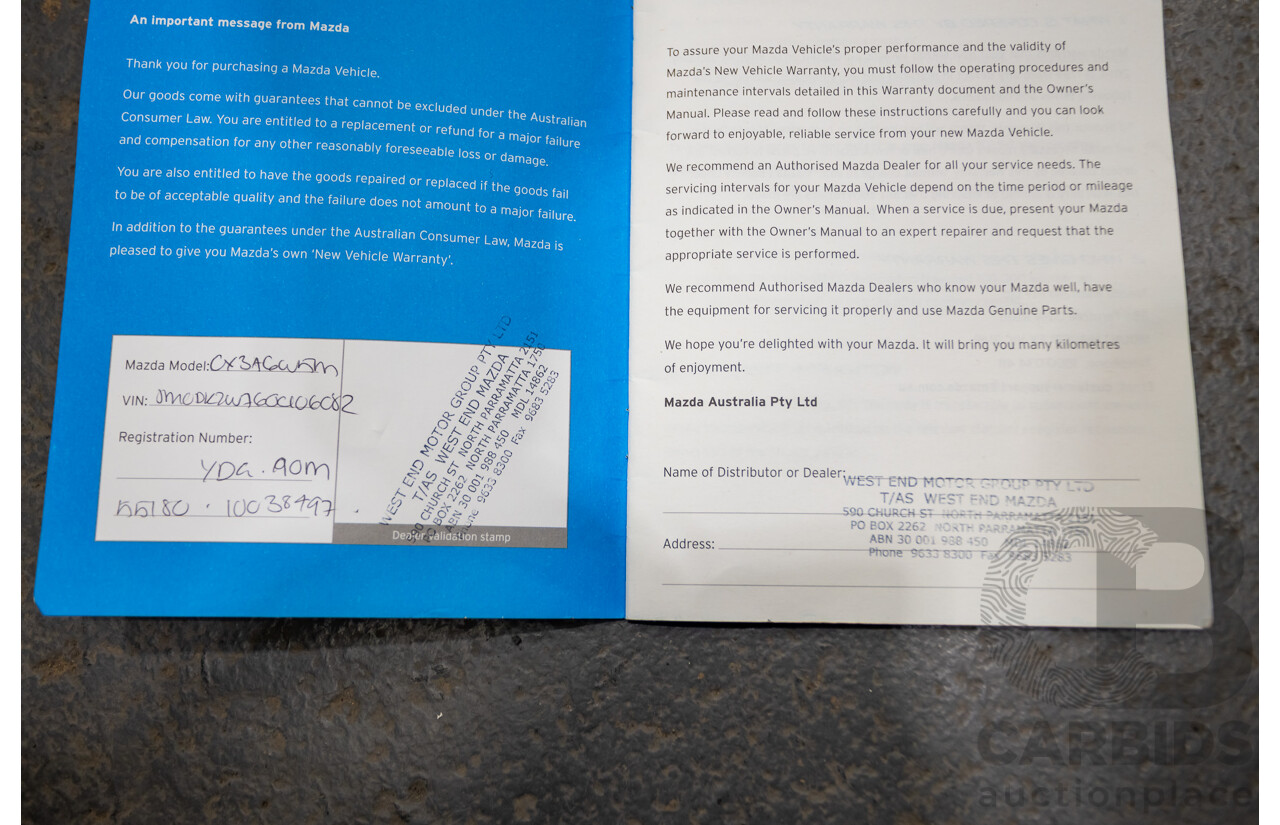 An important message from Mazda
Thank you for purchasing a Mazda Vehicle.
Our goods come with guarantees that cannot be excluded under the Australian
Consumer Law. You are entitled to a replacement or refund for a major failure
and compensation for any other reasonably foreseeable loss or damage.
You are also entitled to have the goods repaired or replaced if the goods fail
to be of acceptable quality and the failure does not amount to a major failure.
In addition to the guarantees under the Australian Consumer Law, Mazda is
pleased to give you Mazda's own 'New Vehicle Warranty'.
Mazda Model:
VIN:
Registration Number:
55180 . 10038497 .
WEST END MOTOR GROUP PTY LTD
T/AS WEST END MAZDA
590 CHURCH ST NORTH PARRAMATTA 2151
PO BOX 2262 NORTH PARRAMATTA 1750
ABN 30 001 988 450 MDL 14862
Phone 9633 8300 Fax 9683 5283
Dealer validation stamp
To assure your Mazda Vehicle's proper performance and the validity of
Mazda's New Vehicle Warranty, you must follow the operating procedures and
maintenance intervals detailed in this Warranty document and the Owner's
Manual. Please read and follow these instructions carefully and you can look
forward to enjoyable, reliable service from your new Mazda Vehicle.
We recommend an Authorised Mazda Dealer for all your service needs. The
servicing intervals for your Mazda Vehicle depend on the time period or mileage
as indicated in the Owner's Manual. When a service is due, present your Mazda
together with the Owner's Manual to an expert repairer and request that the
appropriate service is performed.
We recommend Authorised Mazda Dealers who know your Mazda well, have
the equipment for servicing it properly and use Mazda Genuine Parts.
We hope you're delighted with your Mazda. It will bring you many kilometres
of enjoyment.
Mazda Australia Pty Ltd
Name of Distributor or Dealer:
WEST END MOTOR GROUP PTY LTD
T/AS WEST END MAZDA
590 CHURCH ST NORTH PARRAMATTA
PO BOX 2262 NORTH PARRAMATTA
Address:
ABN 30 001 988 450
Phone 9633 8300 Fax 9683 5283
CARBIDS
auctionplace